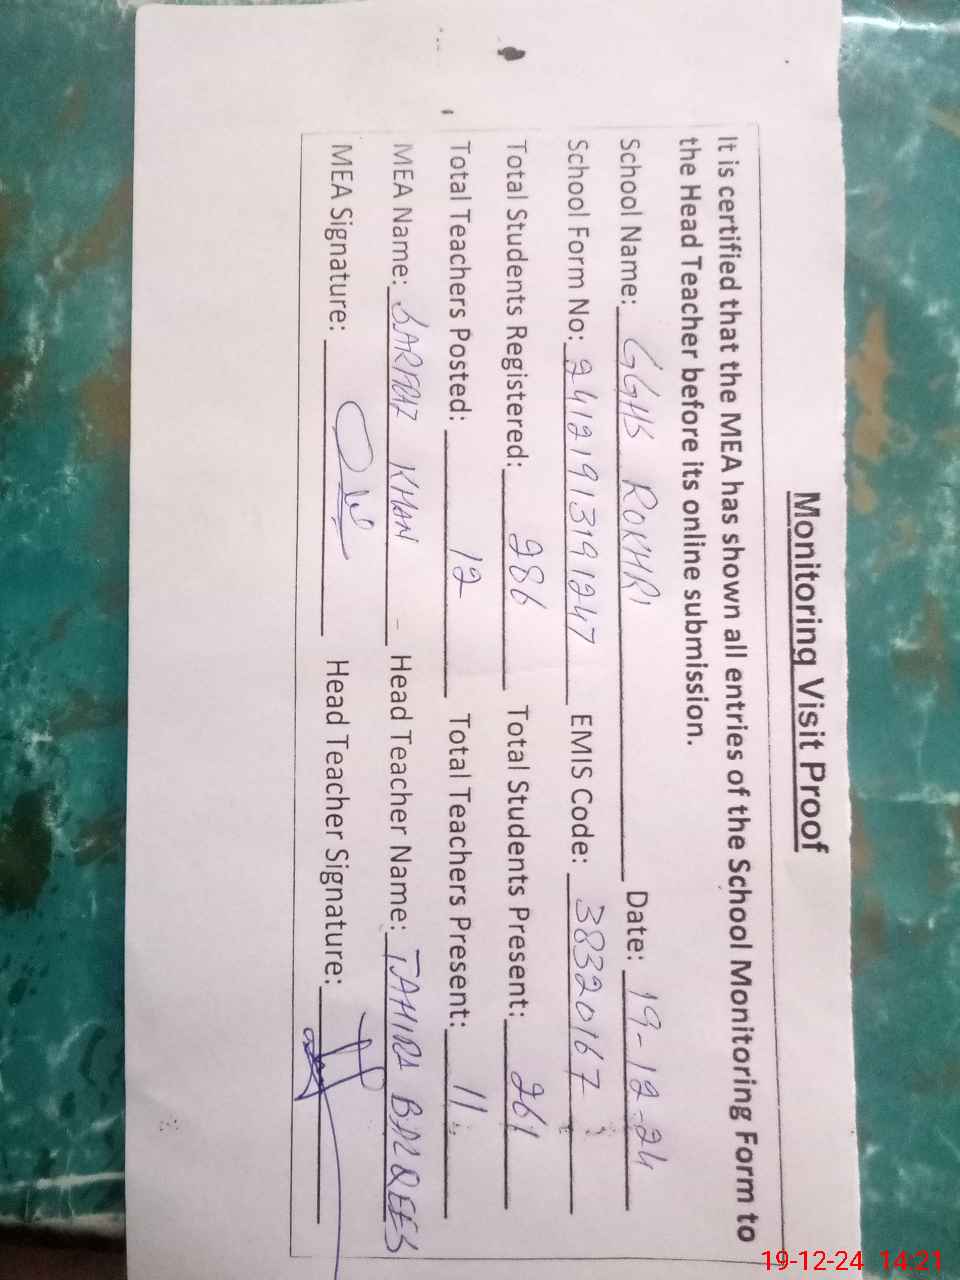 Monitoring Visit Proof
It is certified that the MEA has shown all entries of the School Monitoring Form to
the Head Teacher before its online submission.
School Name: GGHS ROKHRI Date: 19-12-24
School Form No: 241219131991247 EMIS Code: 38320167
Total Students Registered: 286 Total Students Present: 261
Total Teachers Posted: 12 Total Teachers Present: 11
MEA Name: SARFRAZ KHAN Head Teacher Name: TAHIRA BILQEES
MEA Signature: Head Teacher Signature:
19-12-24 14:21